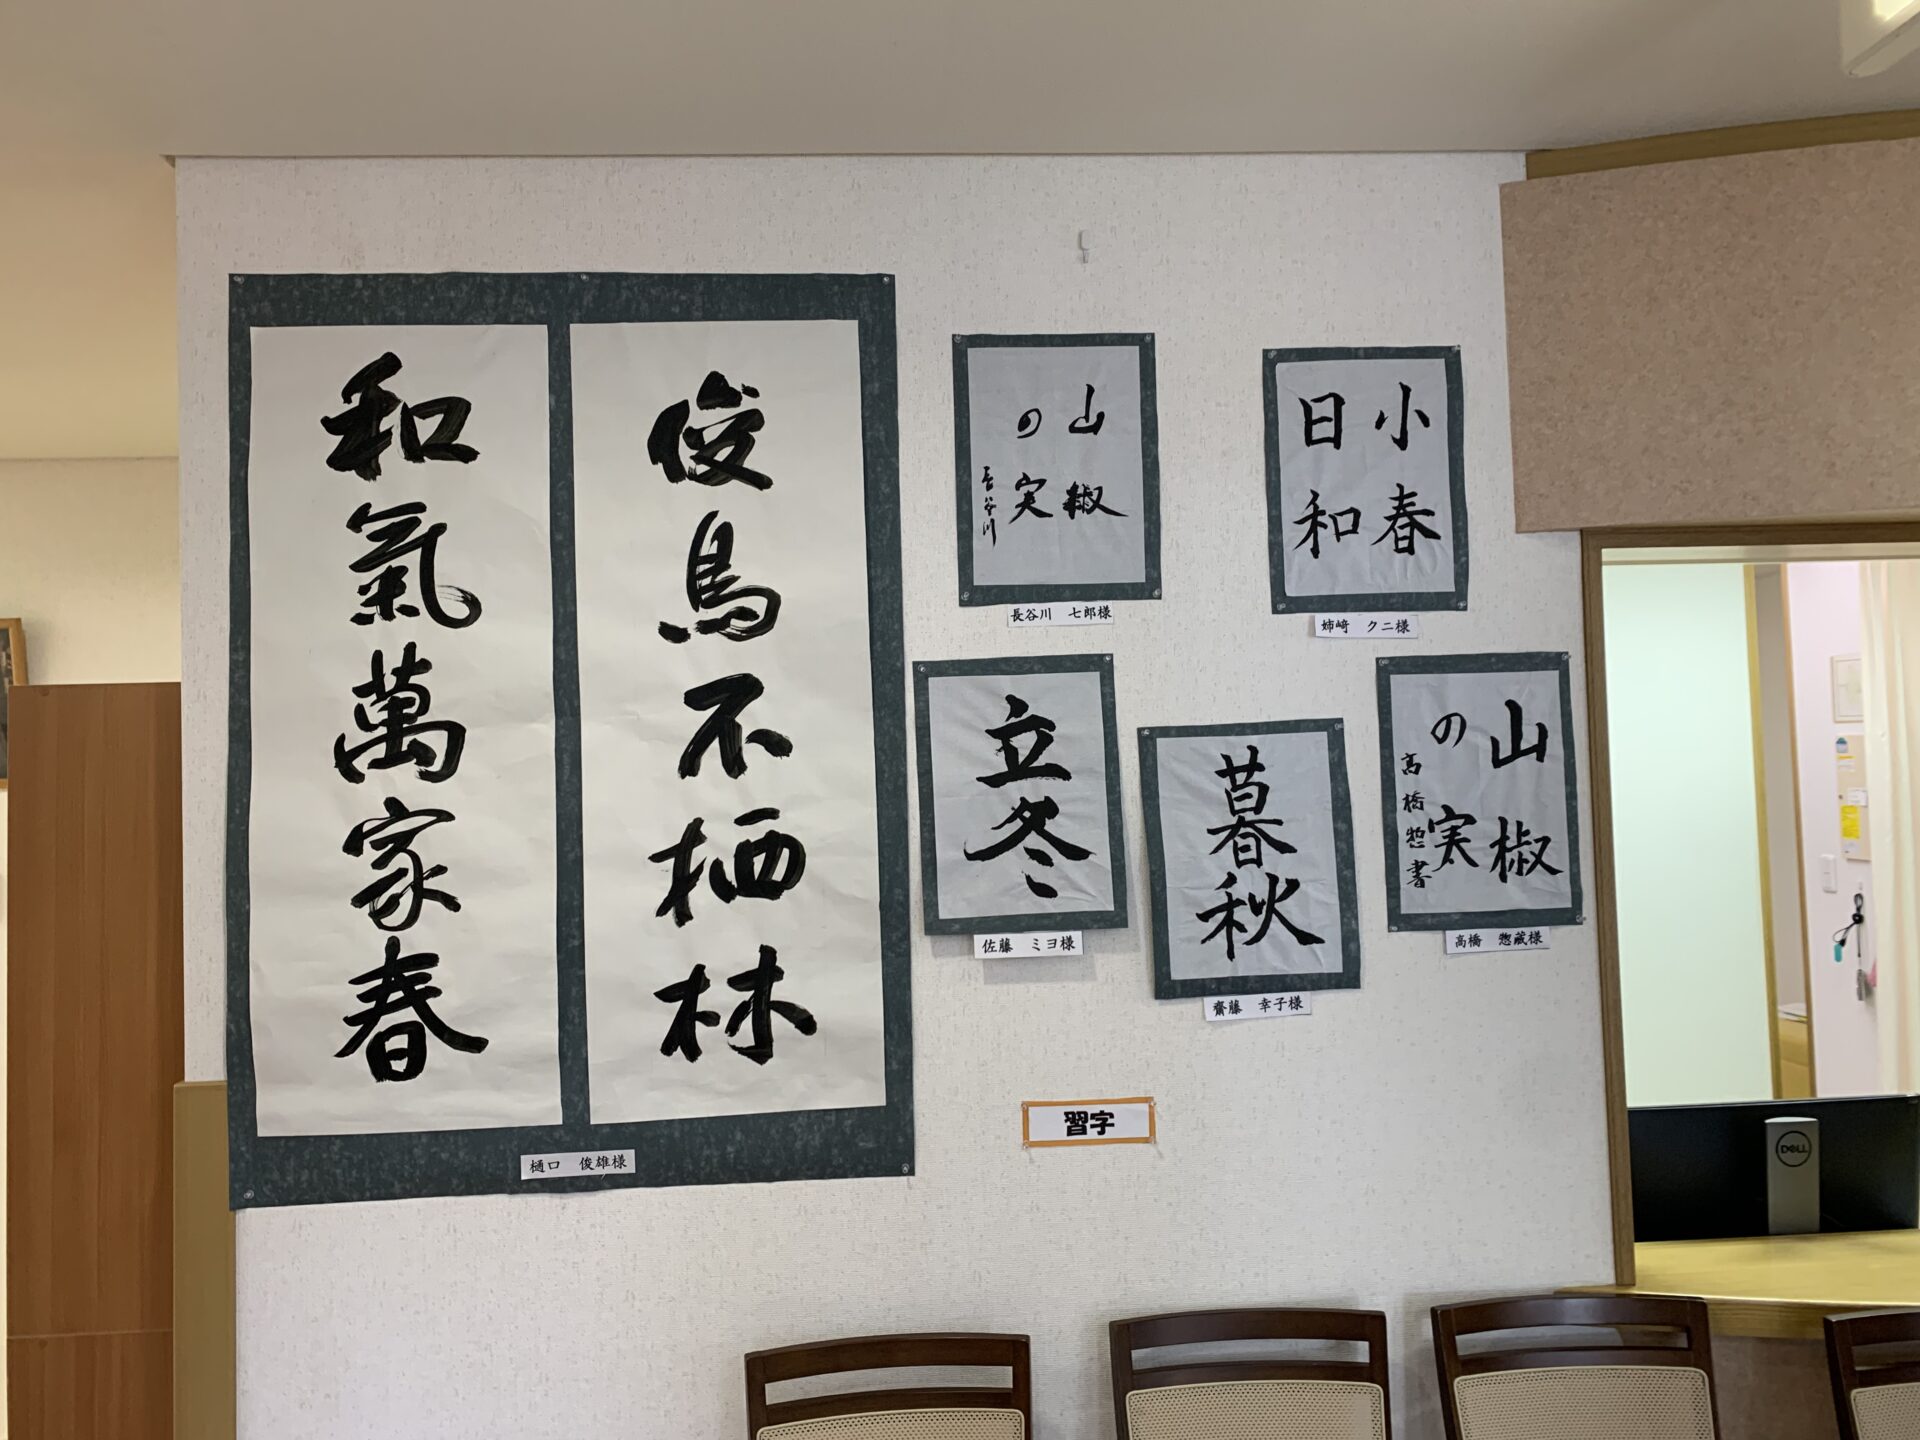 俊鳥不栖林
和氣萬家春
樋口 俊雄様
山椒
の実
長谷川
長谷川 七郎様
小春
日和
姉崎 クニ様
立冬
佐藤 ミヨ様
暮秋
齋藤 幸子様
山椒
の実
高橋惣書
高橋 惣蔵様
習字
DELL